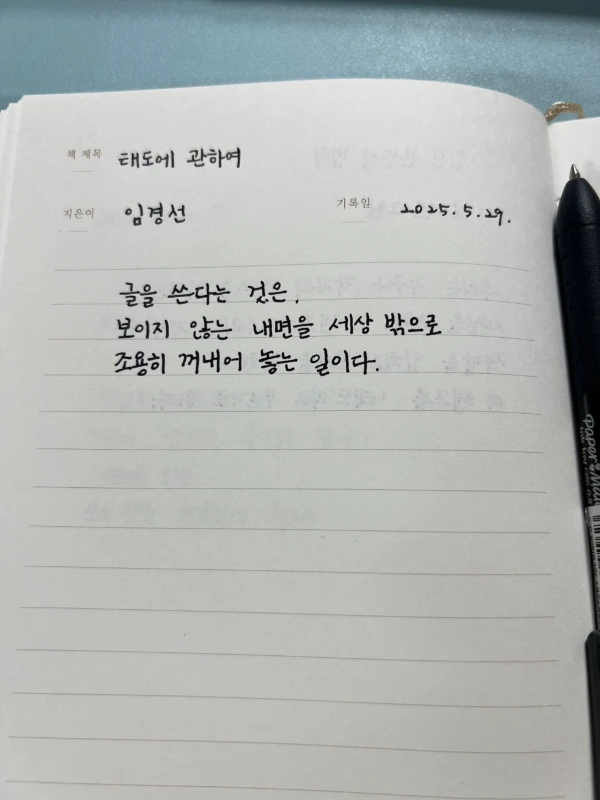 책 제목 태도에 관하여
지은이 임경선 기록일 2025.5.29.
글을 쓴다는 것은,
보이지 않는 내면을 세상 밖으로
조용히 꺼내어 놓는 일이다.
Paper Mate